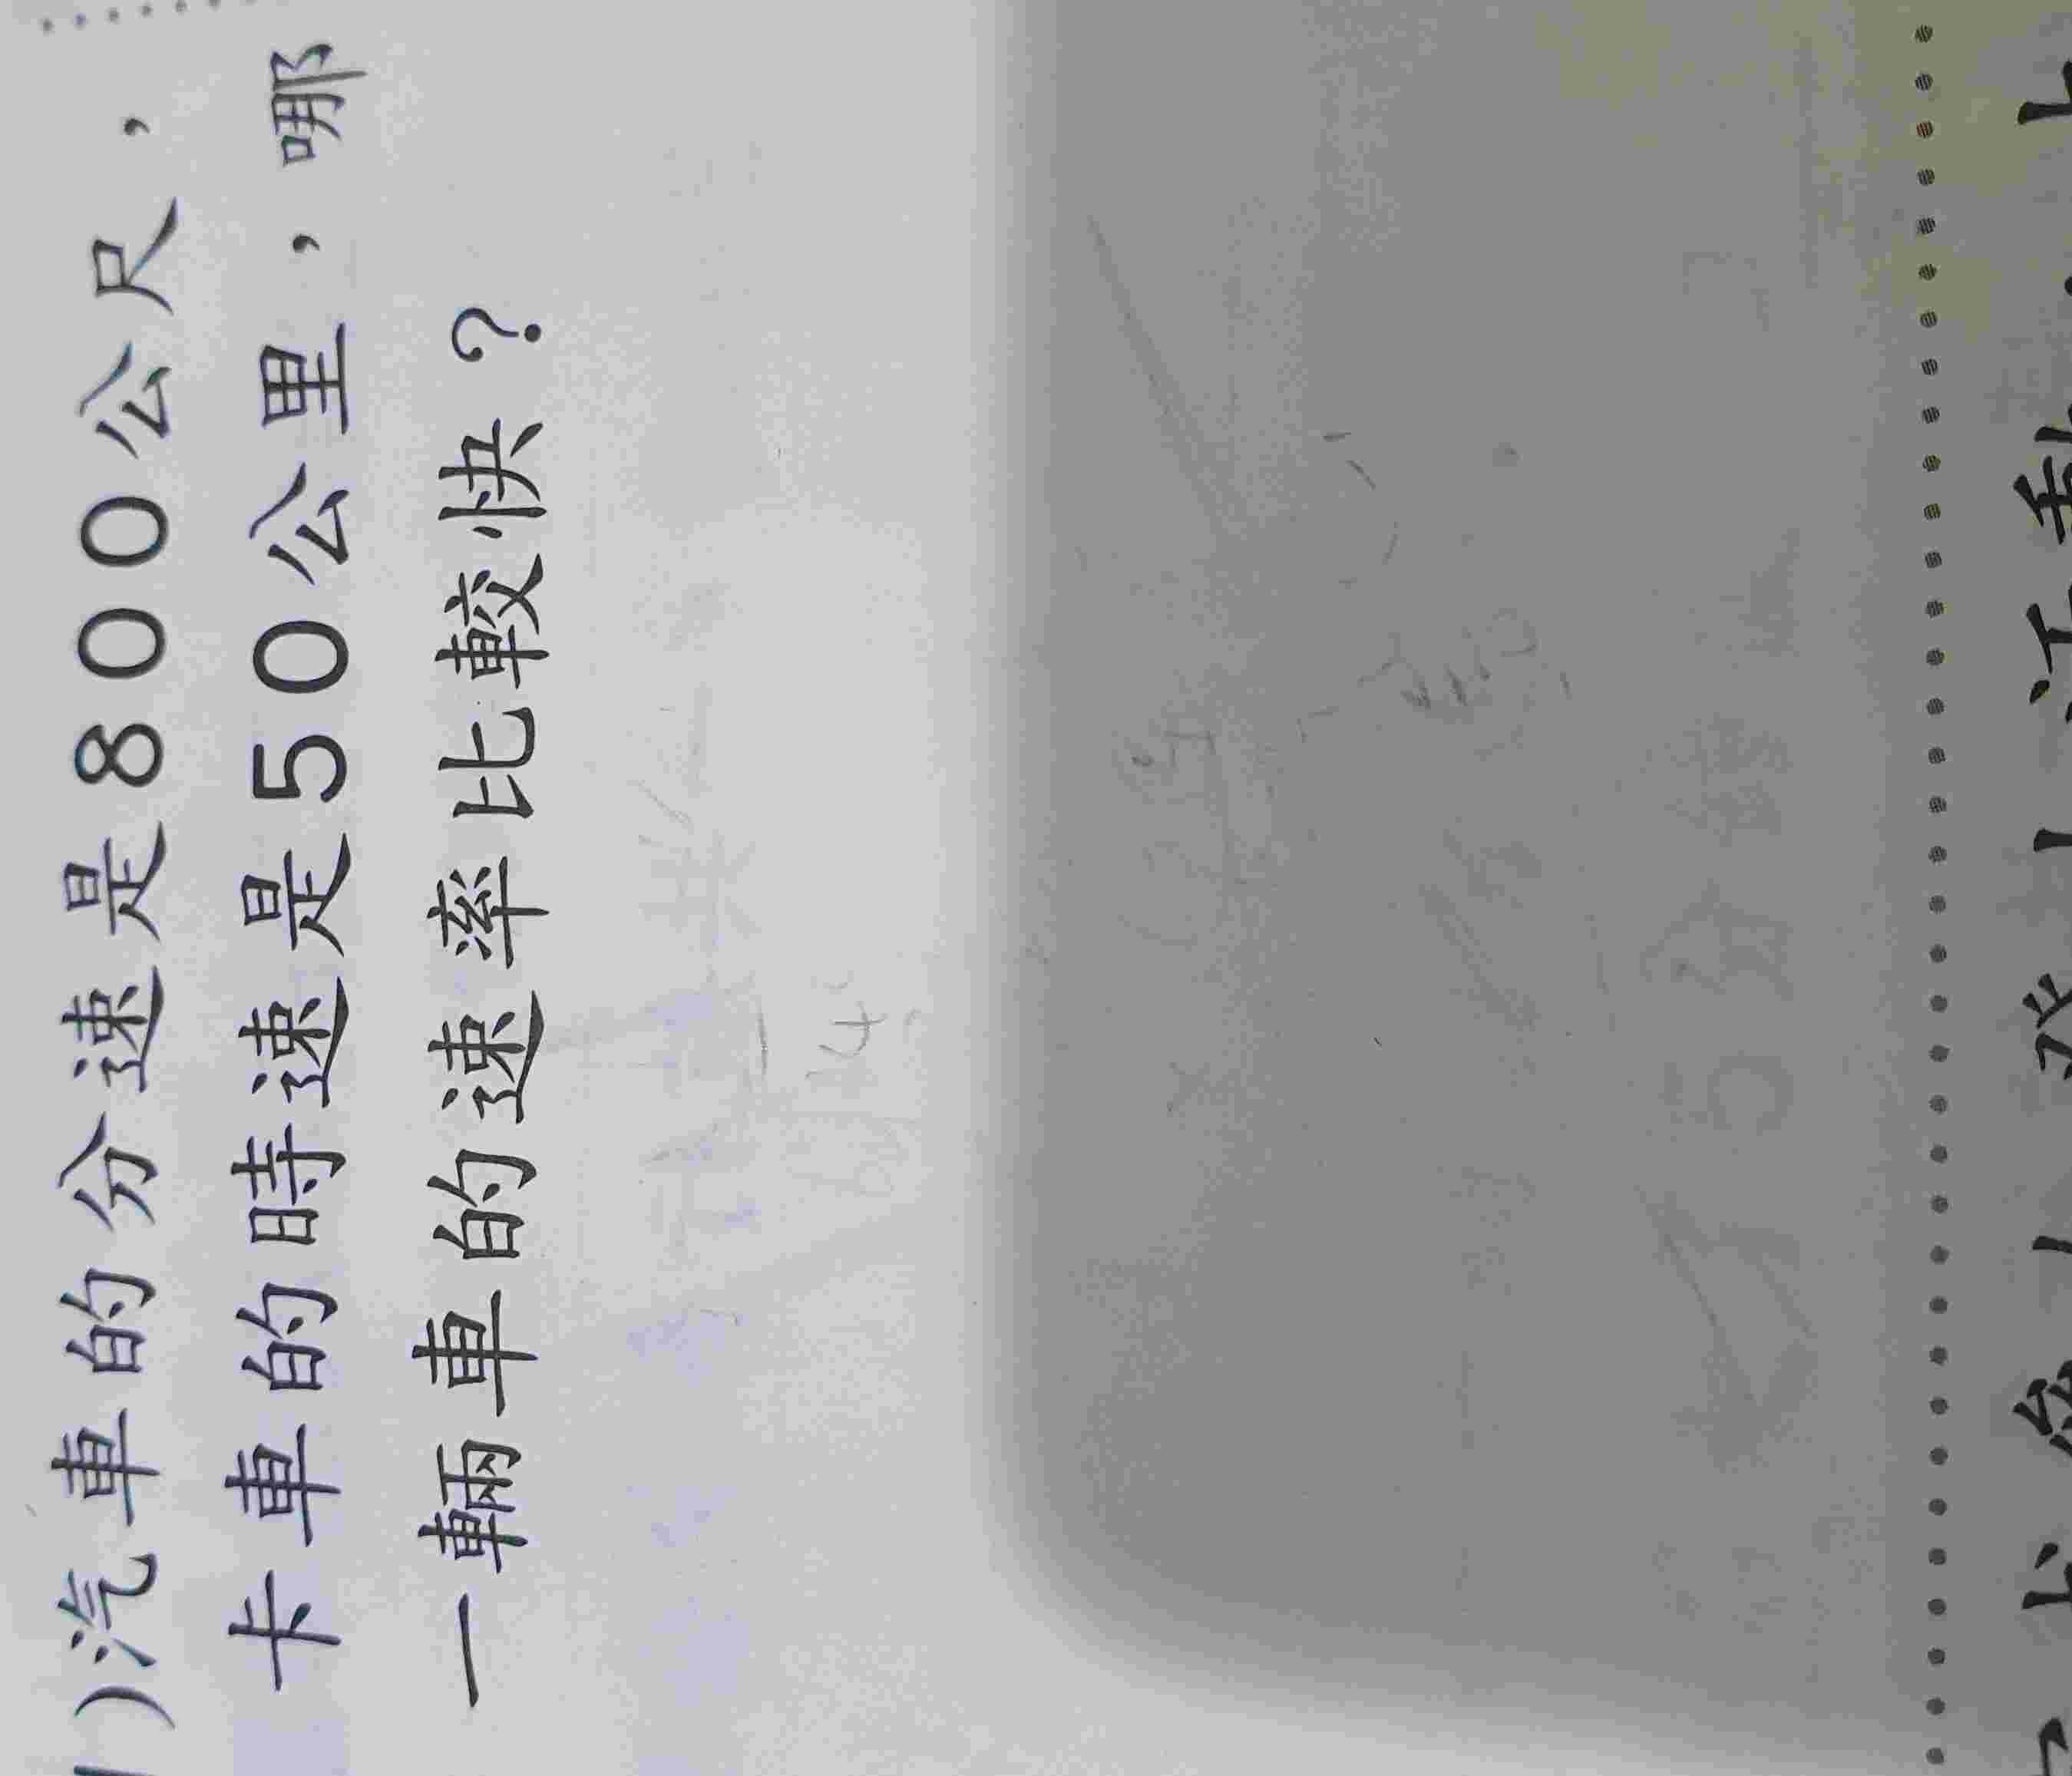 )汽車的分速是800公尺，
卡車的時速是50公里，哪
一輛車的速率比較快？